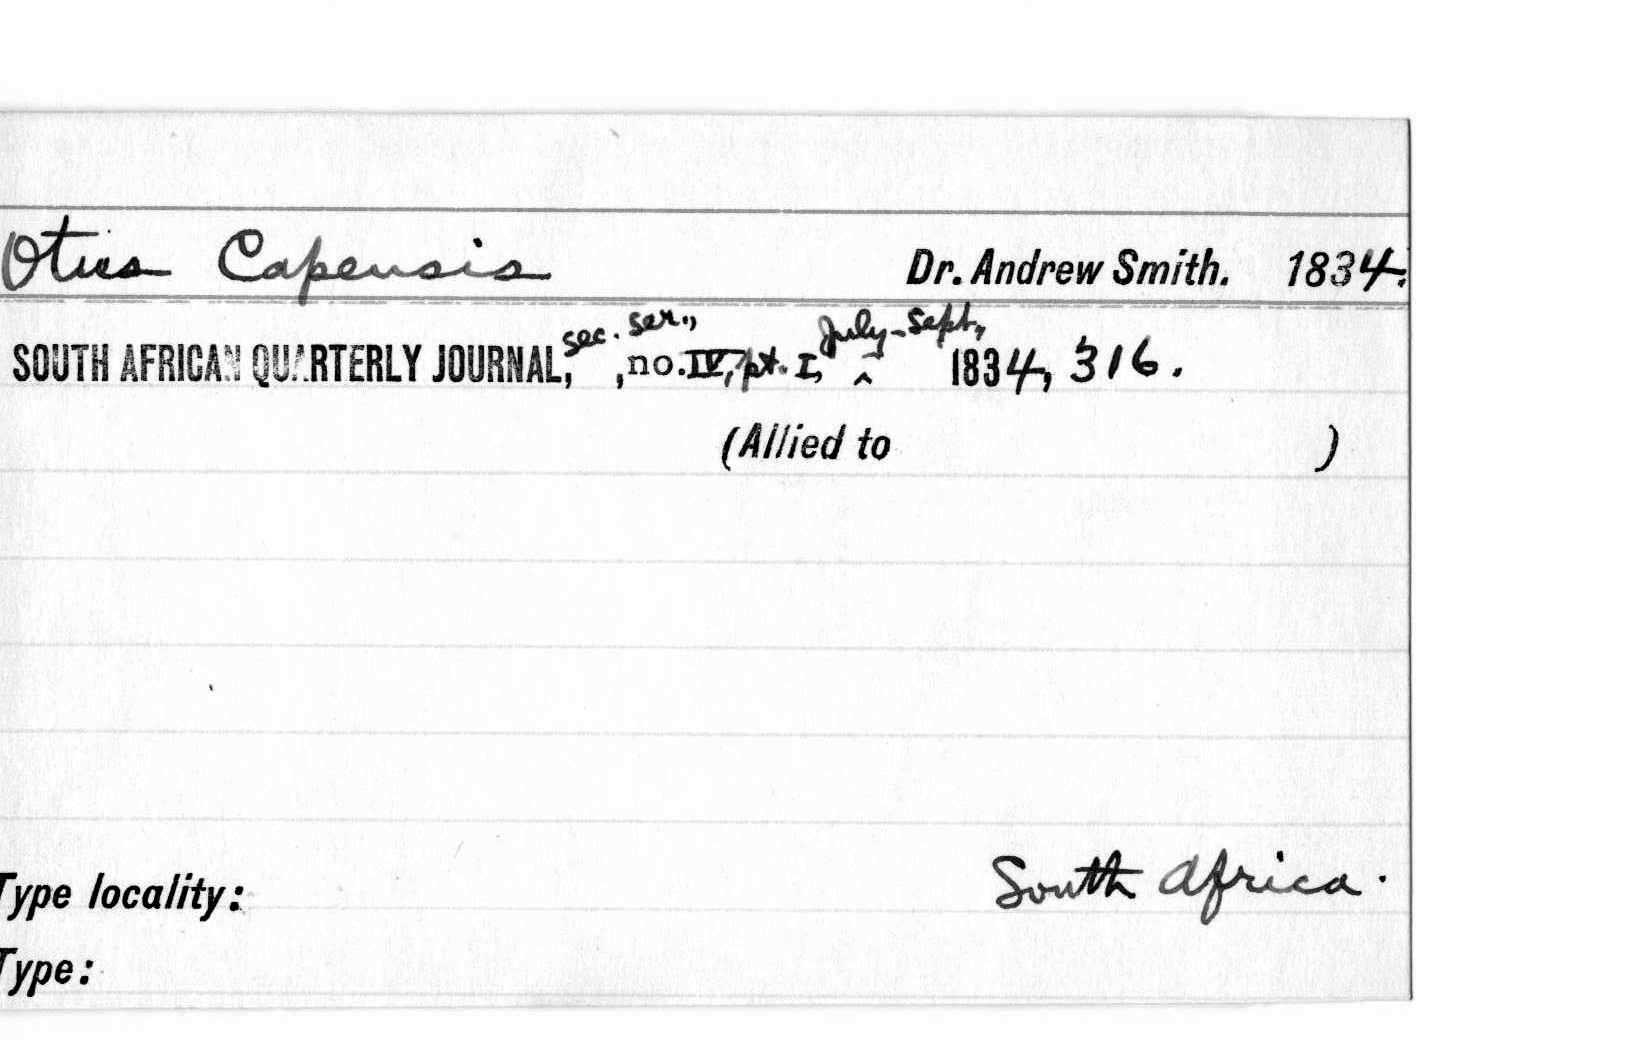 Otus Capensis Dr. Andrew Smith. 1834.
SOUTH AFRICAN QUARTERLY JOURNAL, sec. ser., , no. IV, pt. I, ^ July-Sept., 1834, 316.
(Allied to )
South Africa.
Type locality:
Type: